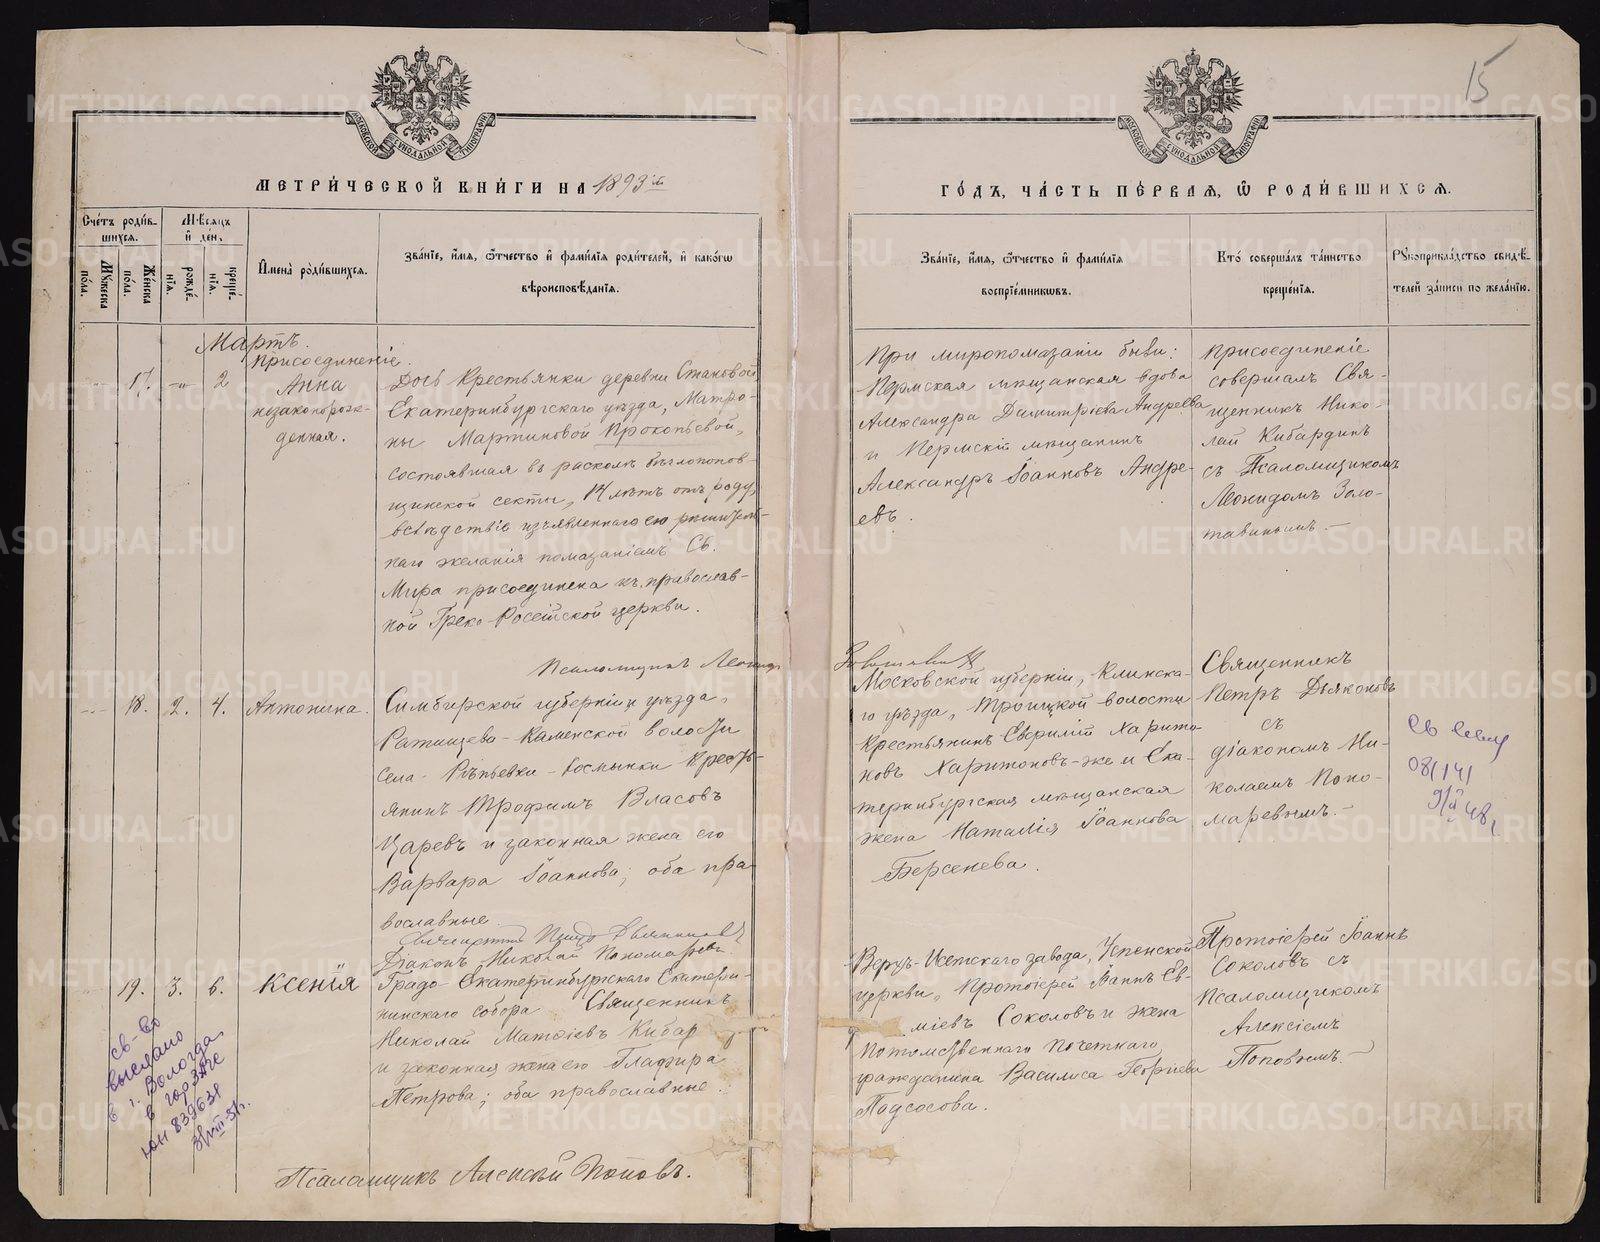 15
МОСКОВСКОЙ СѴНОДАЛЬНОЙ ТИПОГРАФІИ
МОСКОВСКОЙ СѴНОДАЛЬНОЙ ТИПОГРАФІИ
МЕТРИ́ЧЕСКОЙ КНИ́ГИ НА 1893й
ГО́ДЪ, ЧА́СТЬ ПЕ́РВАЯ, Ѽ РОДИ́ВШИХСЯ.
Сче́тъ роди́в-
шихся.
Мꙋ́жеска по́ла.
Же́нска по́ла.
Мѣ́сяцъ
и҆ де́н,
рожде́нїѧ.
креще́нїѧ.
И҆мена̀ роди́вшихся.
Зва́нїе, и҆́мя, ѿтчество и҆ фами́лїя роди́телей, и҆ како́гѡ
вѣроисповѣ́данїя.
Зва́нїе, и҆́мя, ѿтчество и҆ фами́лїя
воспрїе́мникѡвъ.
Кто̀ соверша́лъ та́инство
креще́нїя.
Рꙋкоприкла́дство свидѣ́-
телей за́писи по жела́нїю.
Мартъ.
Присоединеніе.
17. -„- 2
Анна
незаконорож-
денная.
Дочь Крестьянки деревни Становой
Екатеринбургскаго уѣзда, Матро-
ны Мартиновой Прокопьевой,
состоявшая въ расколѣ бѣглопопов-
щинской секты, 14 лѣтъ отъ роду,
вслѣдствіе изъявленнаго ею рѣшитель-
наго желанія помазаніемъ Св.
Мира присоединена къ православ-
ной Греко-Россійской церкви.
Псаломщикъ Леонидъ
Золотавинъ
При миропомазаніи были:
Пермская мѣщанская вдова
Александра Димитріева Андреева
и Пермскій мѣщанинъ
Александръ Іоанновъ Андре-
евъ.
Присоединеніе
совершалъ Свя-
щенникъ Нико-
лай Кибардинъ
съ Псаломщикомъ
Леонидомъ Золо-
тавинымъ.
18. 2. 4. Антонина.
Симбирской губерніи и уѣзда,
Ратищева-Каменской волости
села-Рѣпьевки-Космынки Кресть-
янинъ Трофимъ Власовъ
Царевъ и законная жена его
Варвара Іоаннова; оба пра-
вославные.
Священникъ Петръ Дьяконовъ
Діаконъ Николай Пономаревъ
Московской губерніи, Клинска-
го уѣзда, Троицкой волости
Крестьянинъ Еврилій Харито
новъ Харитоновъ-же и Ека-
теринбургская мѣщанская
жена Наталія Іоаннова
Берсенева.
Священникъ
Петръ Дьяконовъ
съ
діакономъ Ни-
колаемъ Поно-
маревымъ.
08/141
9/II 48г
19. 3. 6. Ксенія
Градо-Екатеринбургскаго Екатери-
нинскаго собора Священникъ
Николай Матѳіевъ Кибар
и законная жена его Глафира
Петрова; оба православные.
Верхъ-Исетскаго завода, Успенской
церкви, Протоіерей Іоаннъ Ев-
міевъ Соколовъ и жена
потомственнаго почетнаго
гражданина Василиса Георгіева
Подсосова.
Протоіерей Іоаннъ
Соколовъ съ
Псаломщикомъ
Алексіемъ
Поповымъ.
св-во
выслано
в г. Вологда
в горЗАГС
ЮН 839631
31/VIII-51г.
Псаломщикъ Алексѣй Поповъ.
METRIKI.GASO-URAL.RU